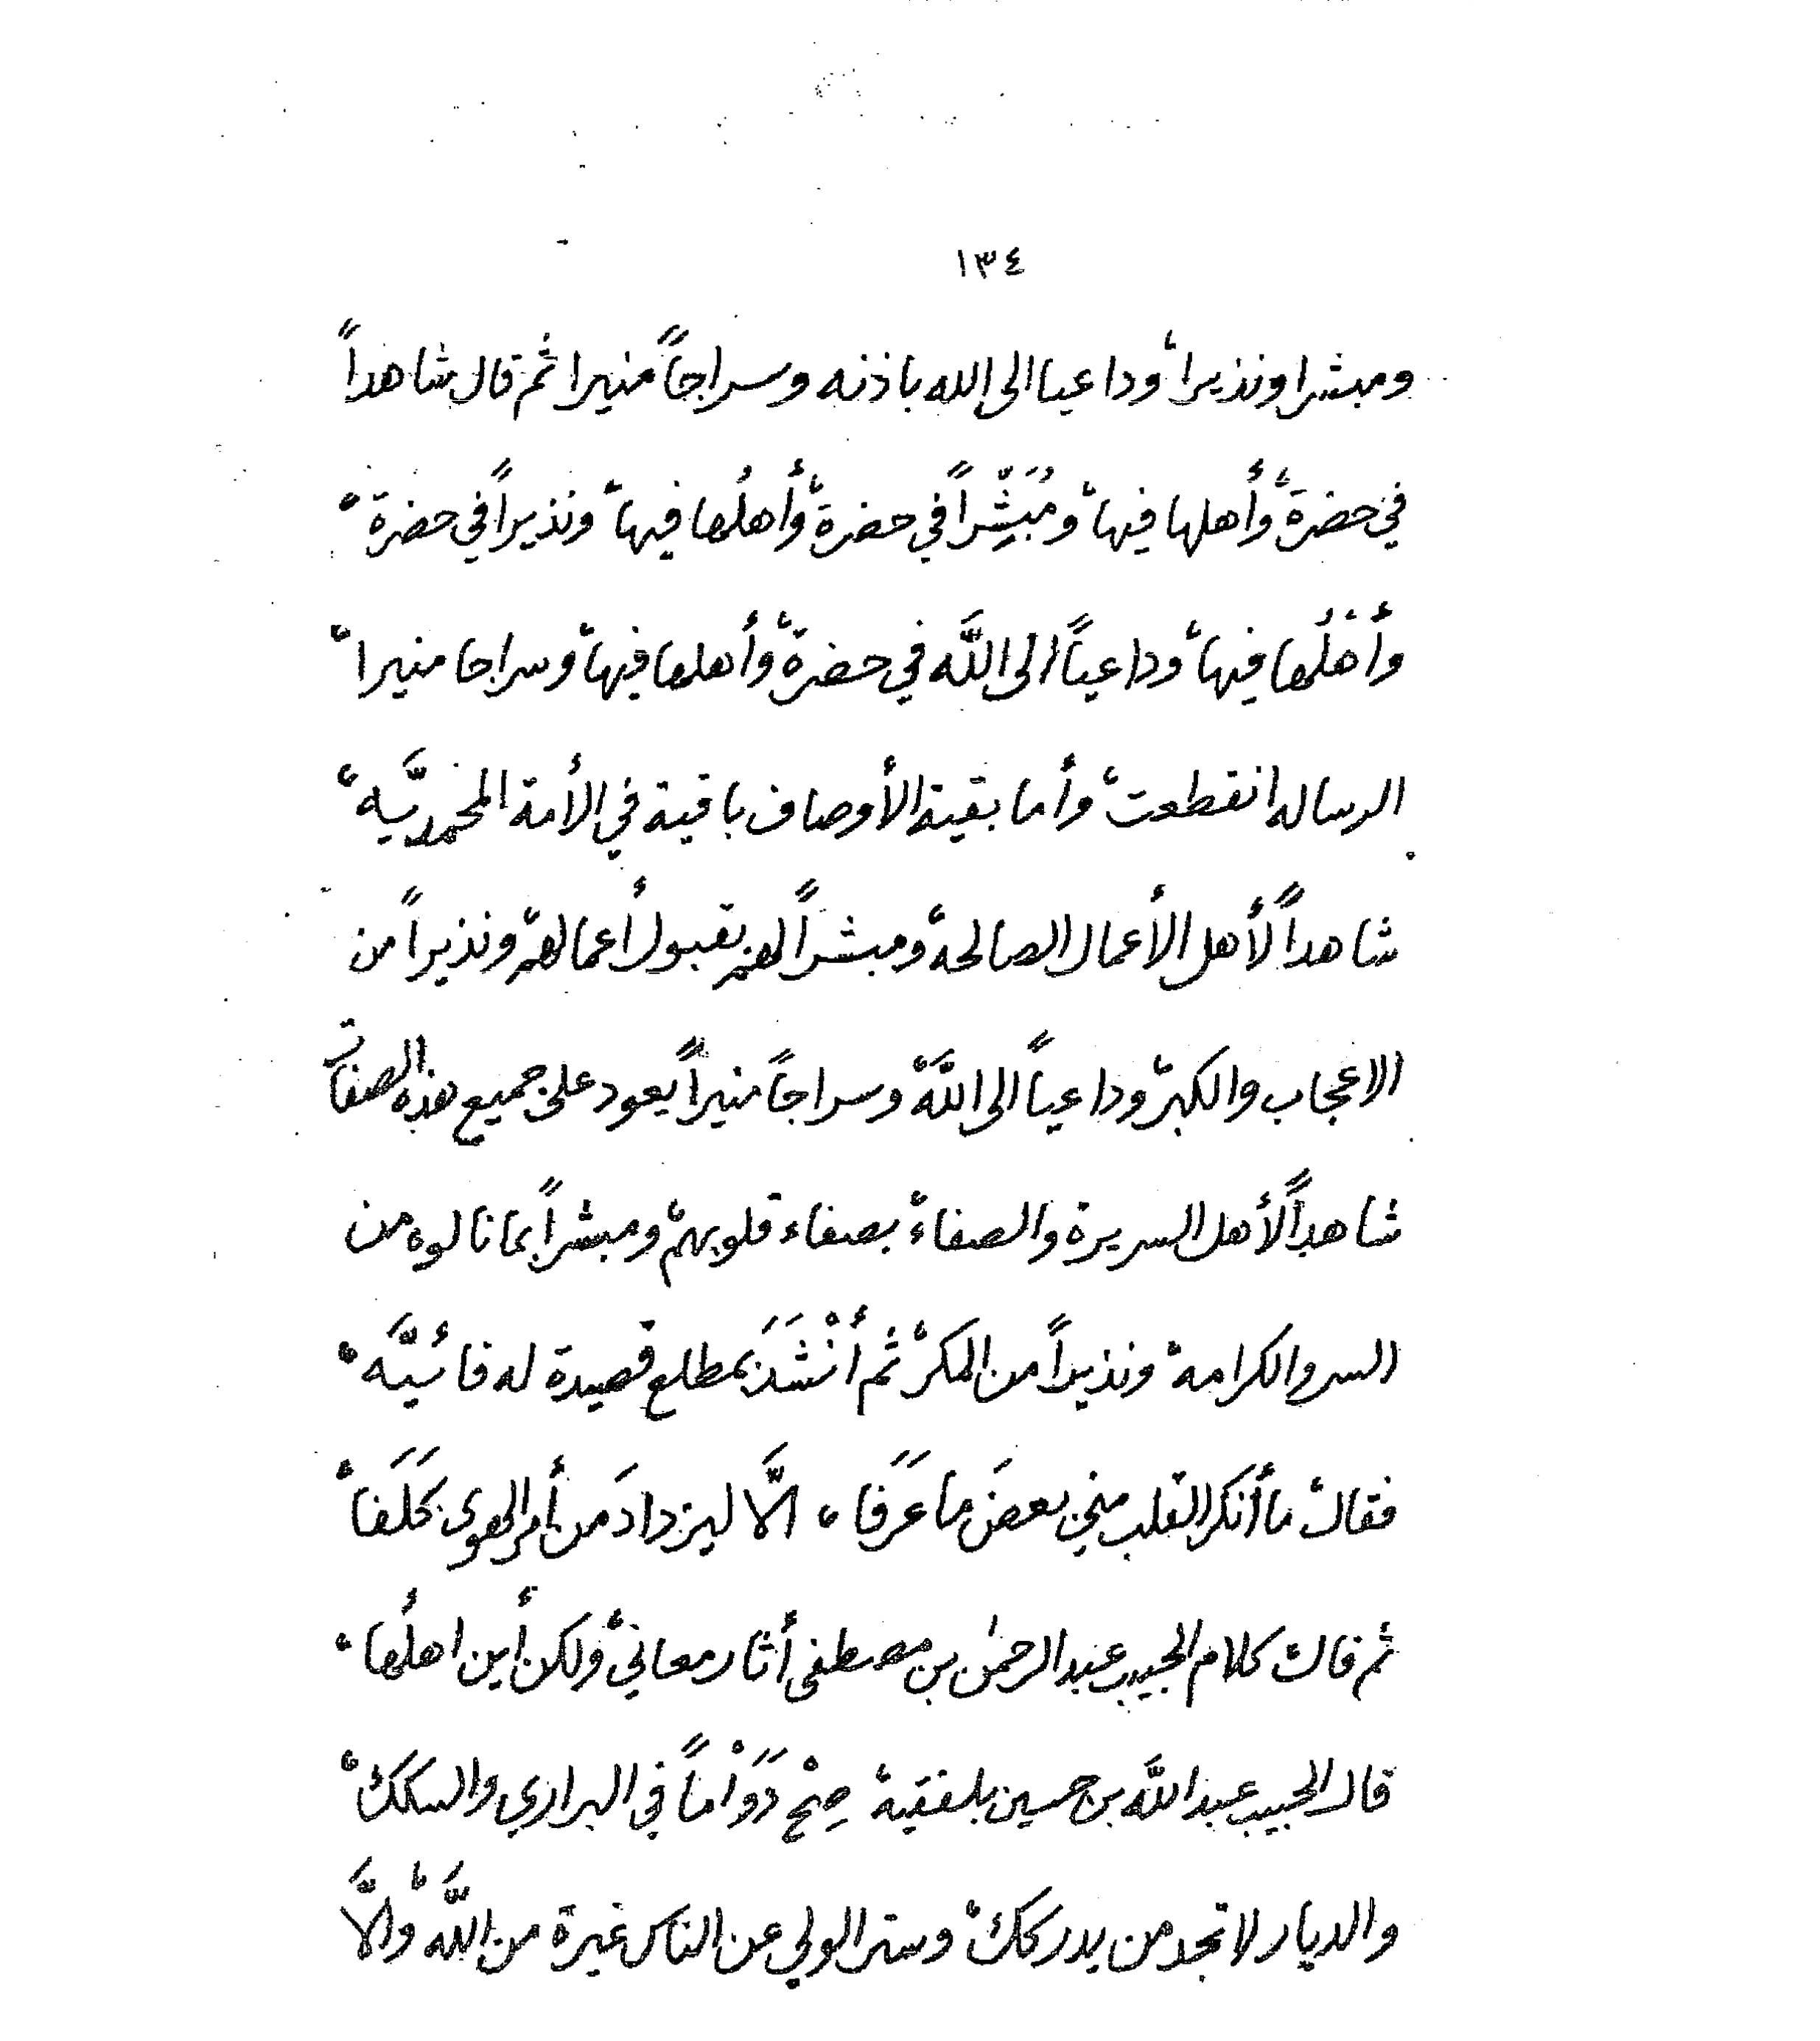 ١٣٤
ومبشرا ونذيرا، وداعيا الى الله باذنه وسراجاً منيرا ثم قال شاهداً
في حضرة، وأهلها فيها، ومُبَشِّراً في حضرة، وأهلُها فيها، ونذيراً في حضرة،
وأَهْلُها فيها، وداعياً الى اللَّه في حضرة، وأهلها فيها، وسراجا منيرا،
الرساله انقطعت، وأما بقية الأوصاف باقية في الأمة المحمديَّه،
شاهداً لأهل الأعمال الصالحة، ومبشراً لهم بقبول أعمالهم، ونذيراً من
الاعجاب والكبر، وداعياً الى اللَّه، وسراجاً منيراً يعود على جميع هذه الصفات
شاهداً لأهل السريرة والصفاء، بصفاء قلوبهم، ومبشراً بما نالوه من
السر والكرامه، ونذيراً من المكر، ثم أنْشَدَ بمطلع قصيدة له فائيَّه،
فقال، ما أنكَر القلب مني بعضَ ما عَرَفا، الَّا ليزدادَ من أمر الهوى كَلَفا،
ثم قال، كلام الحبيب عبد الرحمٰن بن مصطفى أثار معاني، ولكن أين اهلُها،
قال الحبيب عبد اللَّه بن حسين بلفقيه، صِحْ دَوَاْماً في البراري والسكك،
والديار لا تجد من يدركك، وستر الولي عن الناس غيرة من اللَّه، والَّا